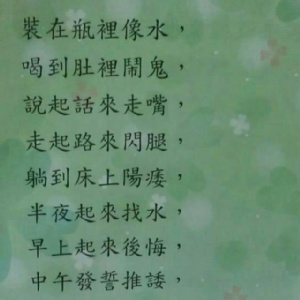 裝在瓶裡像水，
喝到肚裡鬧鬼，
說起話來走嘴，
走起路來閃腿，
躺到床上陽痿，
半夜起來找水，
早上起來後悔，
中午發誓推諉，